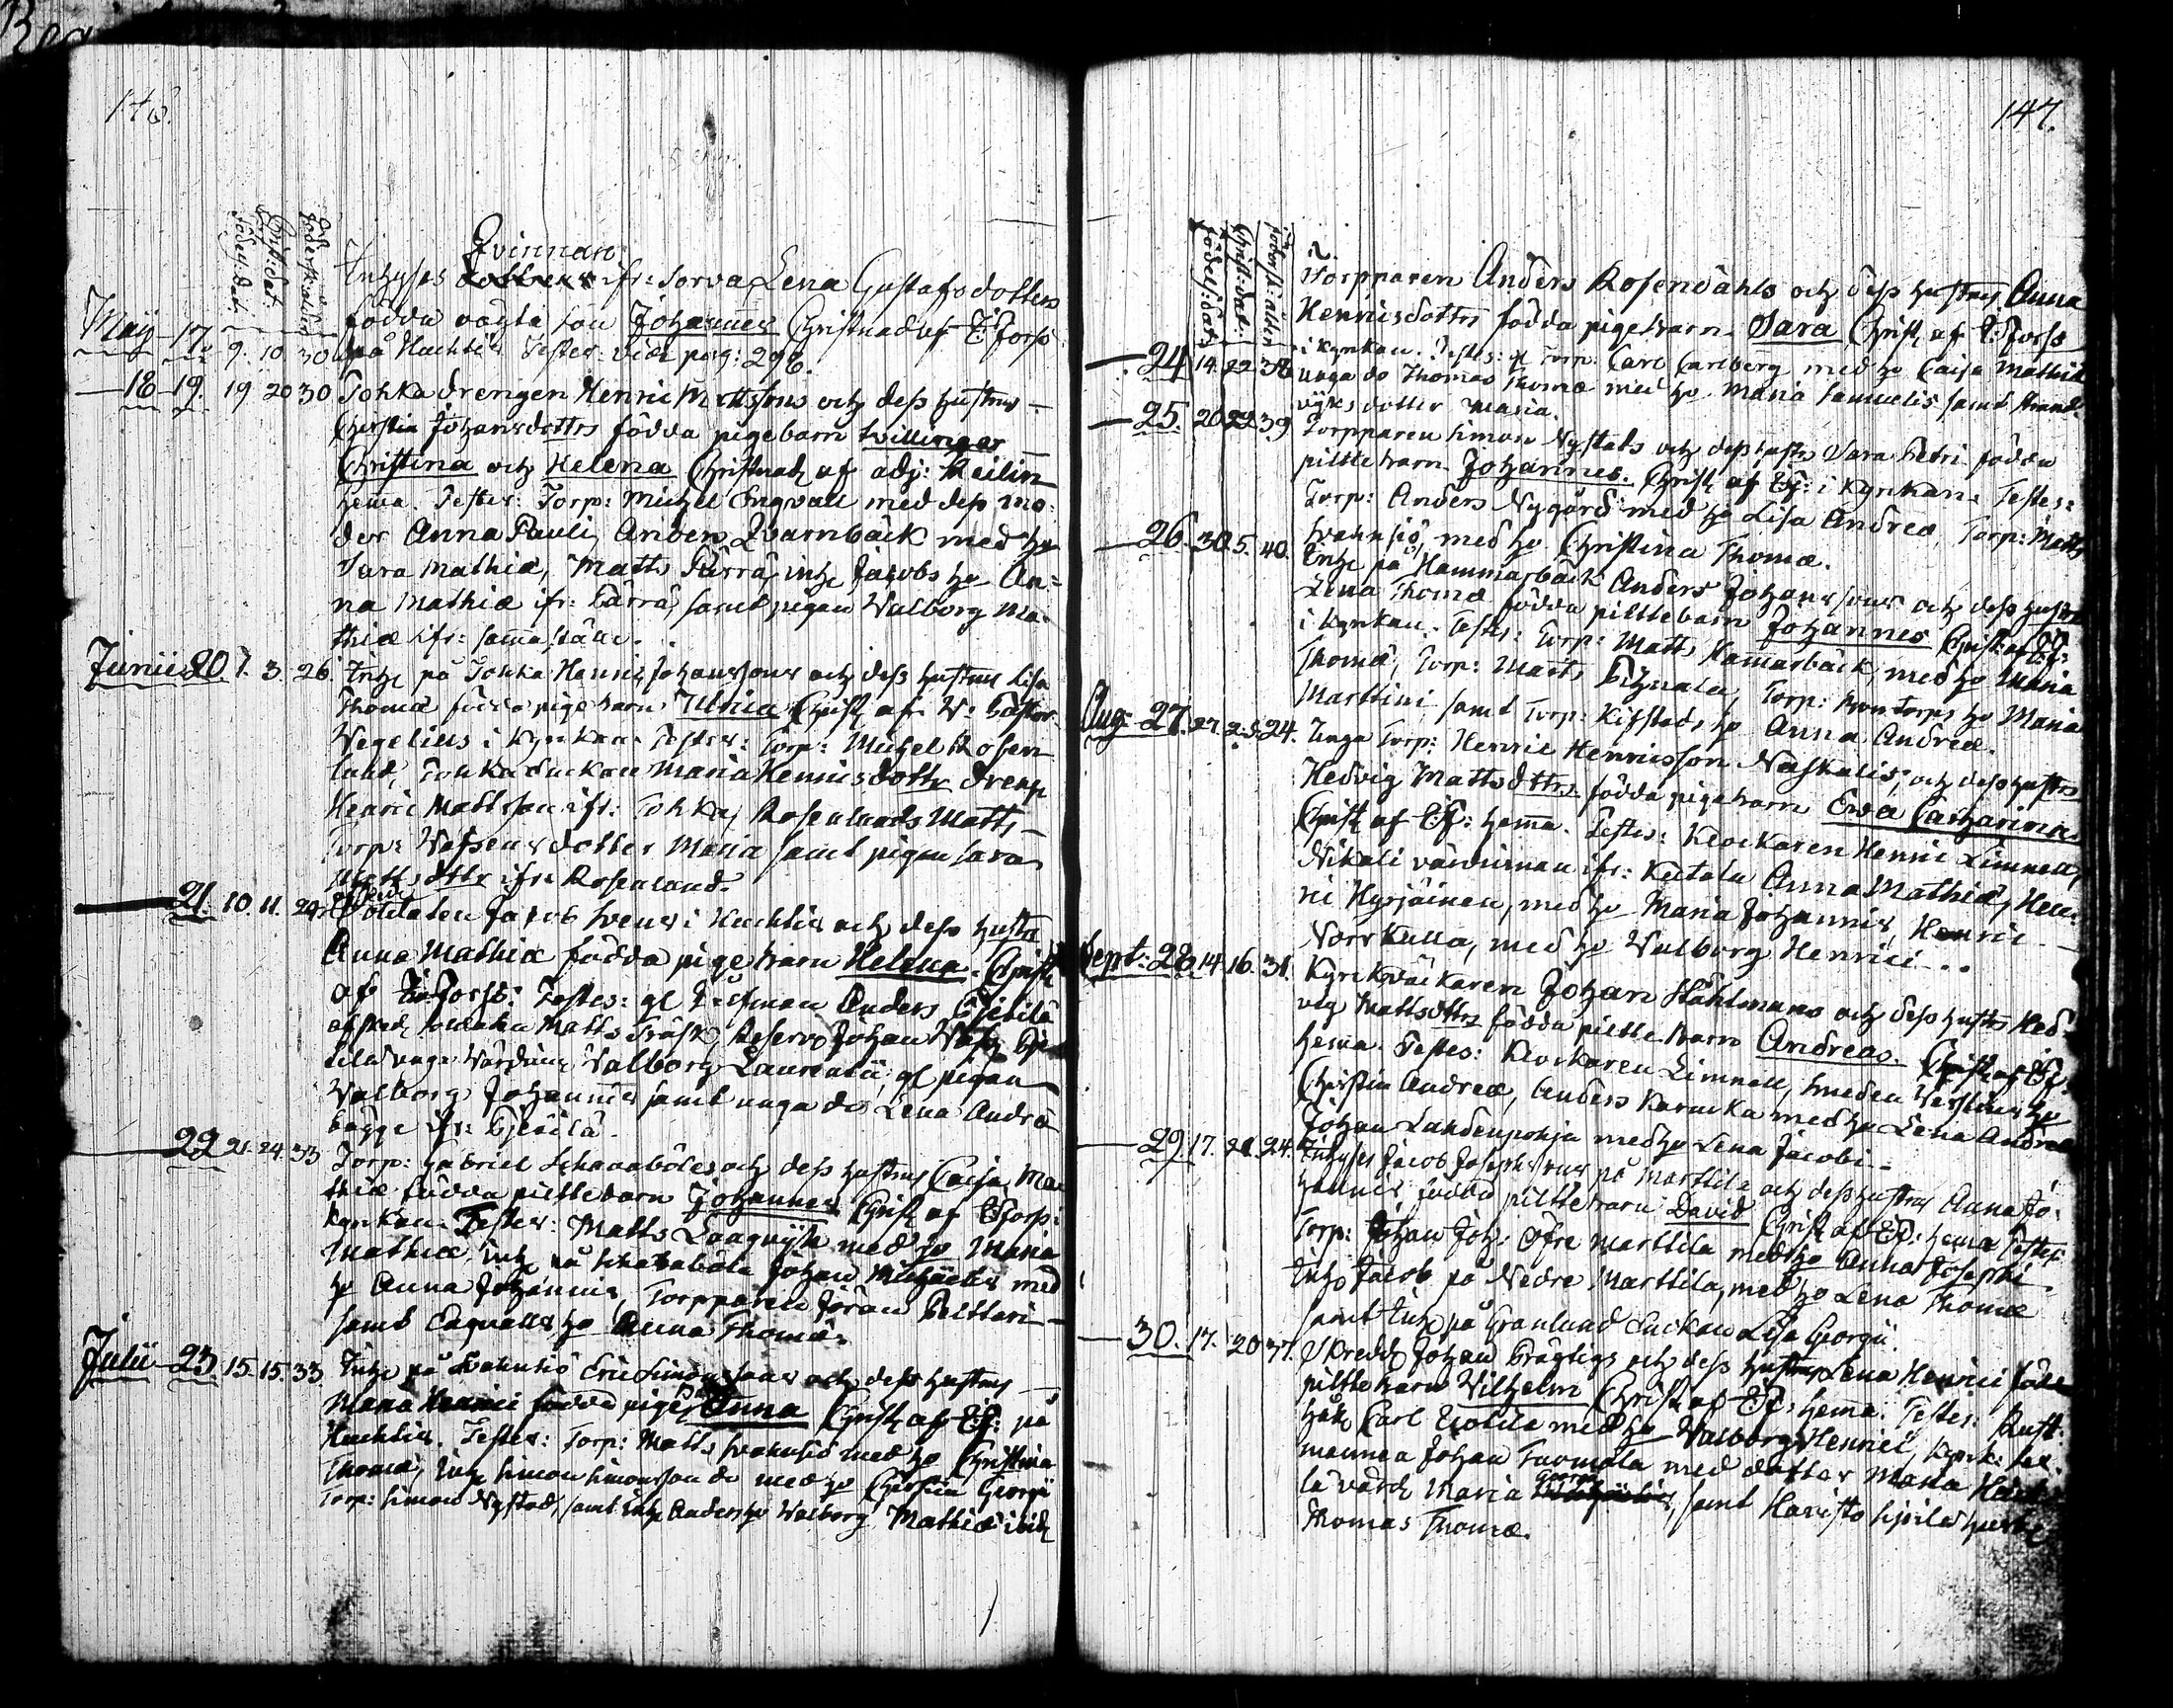 146.
Födels: dat: Christ: dat: Barnföderskans ålder
Qvinnan
Inhyses ifr: Sorva Lena Gustafsdotters
Maij 17. 9. 10 30 födda oägta son Johannes Christnad af E: Forss
på Huchtis Testes: vide pag: 298.
18-19. 19 20 30 Tohka drengen Henric Mattssons och dess hustrus
Christin Johansdottrs födda pigebarn tvillingar
Christina och Helena Christnade af adj: Heilin
hema. Testes: Torp: Michel Engvall med dess mo-
der Anna Pauli, Anders Qvarnbäck med ho
Sara Mathiæ, Matts Pärrä, inh: Jacobs ho An=
na Mathiæ ifr: Pärrä, samt pigan Walborg Ma-
thiæ ifr: sama ställe.
Junii 20 1. 3. 26. Inh: på Tohka Henric Johanssons och dess hustrus Lisa
Thomæ födda pigebarn Ulrica Christ: af V: Pastor
Wegelius i Kyrkan. Testes: Torp: Michel Rosen-
lund, Tohka Enckan Maria Henricsdottr dreng
Henric Mattsson ifr: Tohka, Rosenlunds Matts,
Torp: dotter Maria samt pigan Sara
Mattsdottr ifr: Rosenlund.
21. 10. 11. 29. Soldaten Jacob Svens i Huchtis och dess hustrs
Anna Mathiæ födda pigebarn Helena. Christ:
af E: Forss. Testes: gl Anders Pjeitilä
afsked: soldaten Matts Fräsk, Reserv: Johan
unga Värdinn: Walborg Laurentii, gl pigan
Walborg Johannis samt unga do Lena Andreæ
bägge ifr: Pjeitilä.
22 21. 24. 33 Torp: Gabriel Skavaböles och dess hustrus Caisa Ma-
thiæ födda piltebarn Johannes Christ: af E: Forss:
Kyrkan. Testes: Matts Långqvist med ho Maria
Mathiæ, inh: på Skavaböle Johan Michaelis med
ho Anna Johannis, Torpparen Jöran Pelttari
samt Engvalls ho Anna Thomæ.
Julii 23. 15. 15. 33 Inh: på Svahnsiö Eric Simonssons och dess hustrus
Maria Henrici födda pigeb: Anna Christ: af E:F: på
Huchtis. Testes: Torp: Matts Svahnsiö med ho Christina
Thomæ, Inh: Simon Simonsson do med ho Christin Georgii
Torp: Simon Nystad, samt Inh: Anders ho Walborg Mathiæ ibid:
147.
Födels: dat: Christ: dat: föderski: ålder
24 14. 22 38 Torpparen Anders Rosendahls och dess hustrus Anna
Henricsdottrs födda pigebarn Sara Christ: af E: Forss
i Kyrkan. Testes: gl Torp: Carl Carlberg med ho Caisa Mathiæ
unga do Thomas Thomæ med ho Maria Samuelis samt Strand-
viks dotter Maria.
25. 20 22 39 Torpparen Simon Nystads och dess hustrs Sara Petri födda
piltebarn Johannes. Christ: af E:F: i Kyrkan. Testes:
Torp: Anders Nygård med ho Lisa Andreæ, Torp: Matts
Svahnsiö, med ho Christina Thomæ.
26. 30. 5. 40. Inh: på Hammarbäck Anders Johanssons och dess hustrus
Lena Thomæ födda piltebarn Johannes Christ: af E:F:
i Kyrkan. Testes: Torp: Matts Hamarbäck, med ho Maria
Thomæ, Torp: Matts Pihnala, Torp: ho Maria
Marttini samt Torp: Kifstads ho Anna Andreæ.
Aug: 27. 27. 2.S. 24. Unga Torp: Henric Henricsson Naskalis, och dess hustrs
Hedvig Mattsdttrs födda pigebarn Ewa Catharina.
Christ: af E:F: hema. Testes: Klockaren Henric Limnell,
Nikali värdinnan ifr: Keitala Anna Mathiæ, Hen-
ric Hyrjäinen, med ho Maria Johannis, Henric
Norrkulla, med ho Walborg Henrici.
Sept: 28. 14. 16. 31. Kyrckväckaren Johan Ståhlmans och dess hustrs Hed-
vig Mattsdttrs födda piltebarn Andreas. Christ: af E:F:
hema. Testes: Klockaren Limnell, Smeden ho
Christin Andreæ, Anders Karucka med ho Lena Andreæ
Johan Lahdenpohja med ho Lena Jacobi.
29. 17. 21. 24. Inhyses Jacob Josephssons på Marttila och dess hustrus Anna Jo-
hannis, födda piltebarn David Christ: af E:F: hema Testes:
Torp: Johan Joh: Öfre Marttila med ho Anna Josephi
Inh: Jacob på Nedre Marttila, med ho Lena Thomæ
samt Inh: på Granlund Enckan Lisa Georgii.
30. 17. 20 37. Skredd: Johan Prägtigs och dess hustrus Lena Henrici födda
piltebarn Wilhelm Christ: af E:F: hema. Testes: Rust:
håll: Carl Erolila med ho Walborg Henrici, Kyrck:
mannen Johan Tuomola med dotter Maria
la värd: Maria Georgii, samt Haristo
Thomas Thomæ.